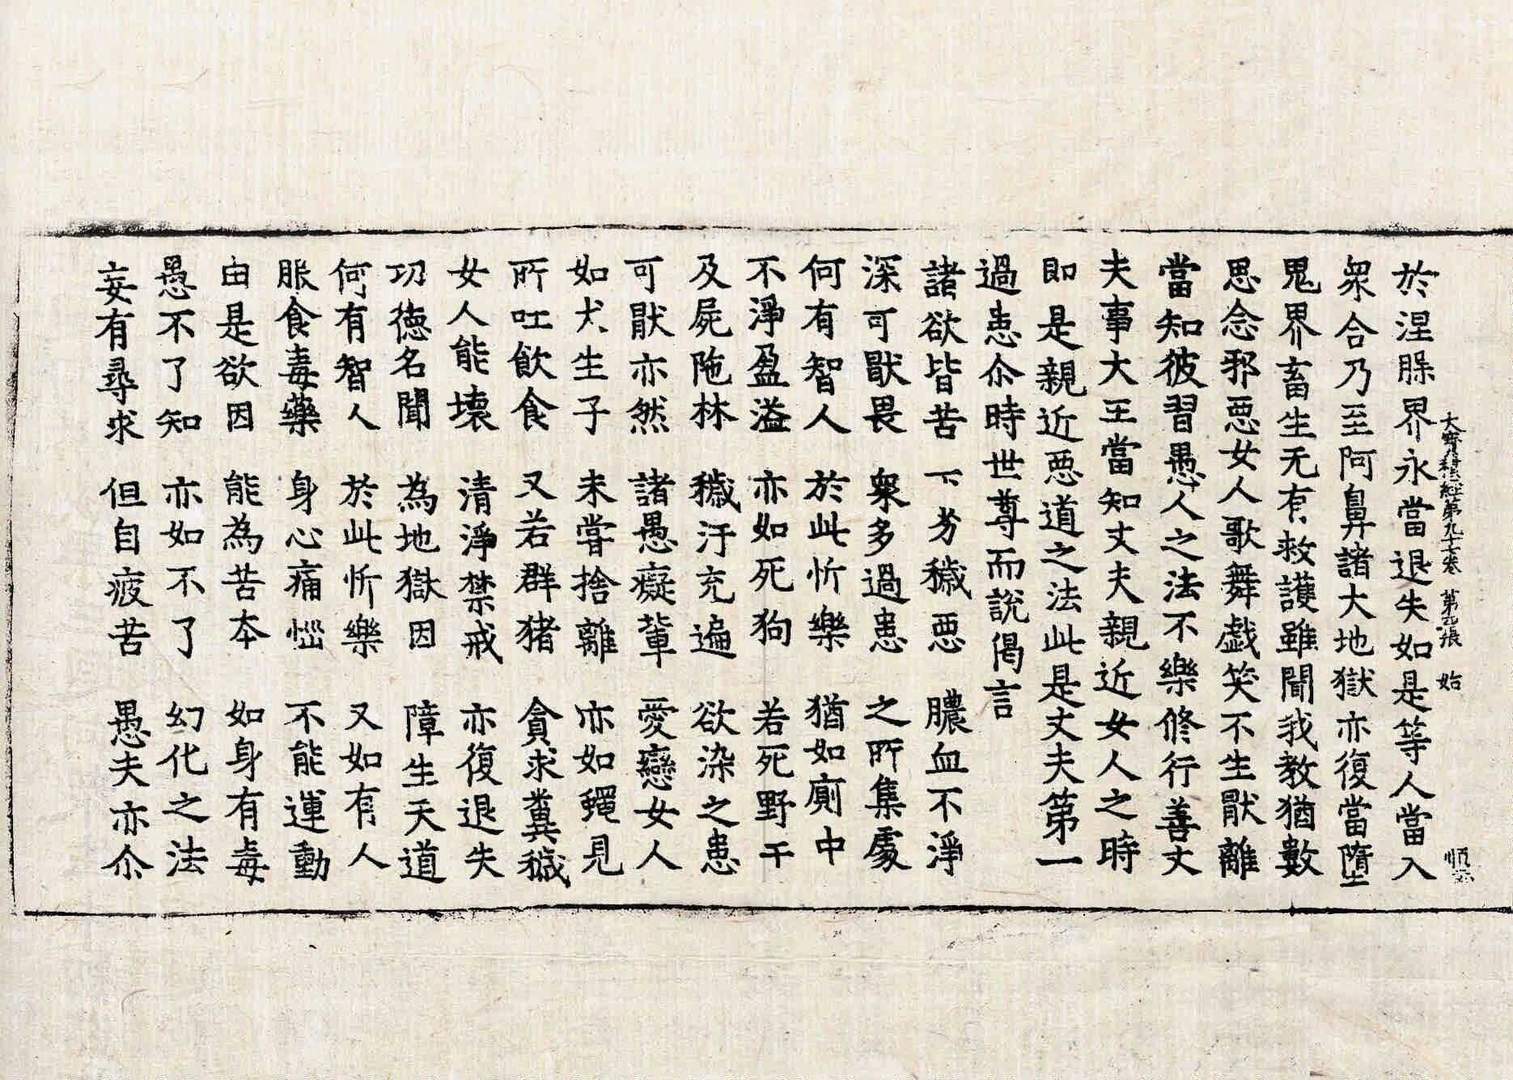 大寶積經第九十七卷 第九張 始
於涅槃界永當退失如是等人當入
衆合乃至阿鼻諸大地獄亦復當墮
鬼界畜生无有救護雖聞我教猶數
思念邪惡女人歌舞戯笑不生猒離
當知彼習愚人之法不樂修行善丈
夫事大王當知丈夫親近女人之時
即是親近惡道之法此是丈夫第一
過患尒時世尊而說偈言
諸欲皆苦 下劣穢惡 膿血不淨
深可猒畏 衆多過患 之所集處
何有智人 於此忻樂 猶如廁中
不淨盈溢 亦如死狗 若死野干
及屍陁林 穢汙充遍 欲染之患
可猒亦然 諸愚癡輩 愛戀女人
如犬生子 未甞捨離 亦如蠅見
所吐飲食 又若群猪 貪求糞穢
女人能壞 清淨禁戒 亦復退失
功德名聞 為地獄因 障生天道
何有智人 於此忻樂 又如有人
服食毒藥 身心痛惱 不能運動
由是欲因 能為苦本 如身有毒
愚不了知 亦如不了 幻化之法
妄有尋求 但自疲苦 愚夫亦尒